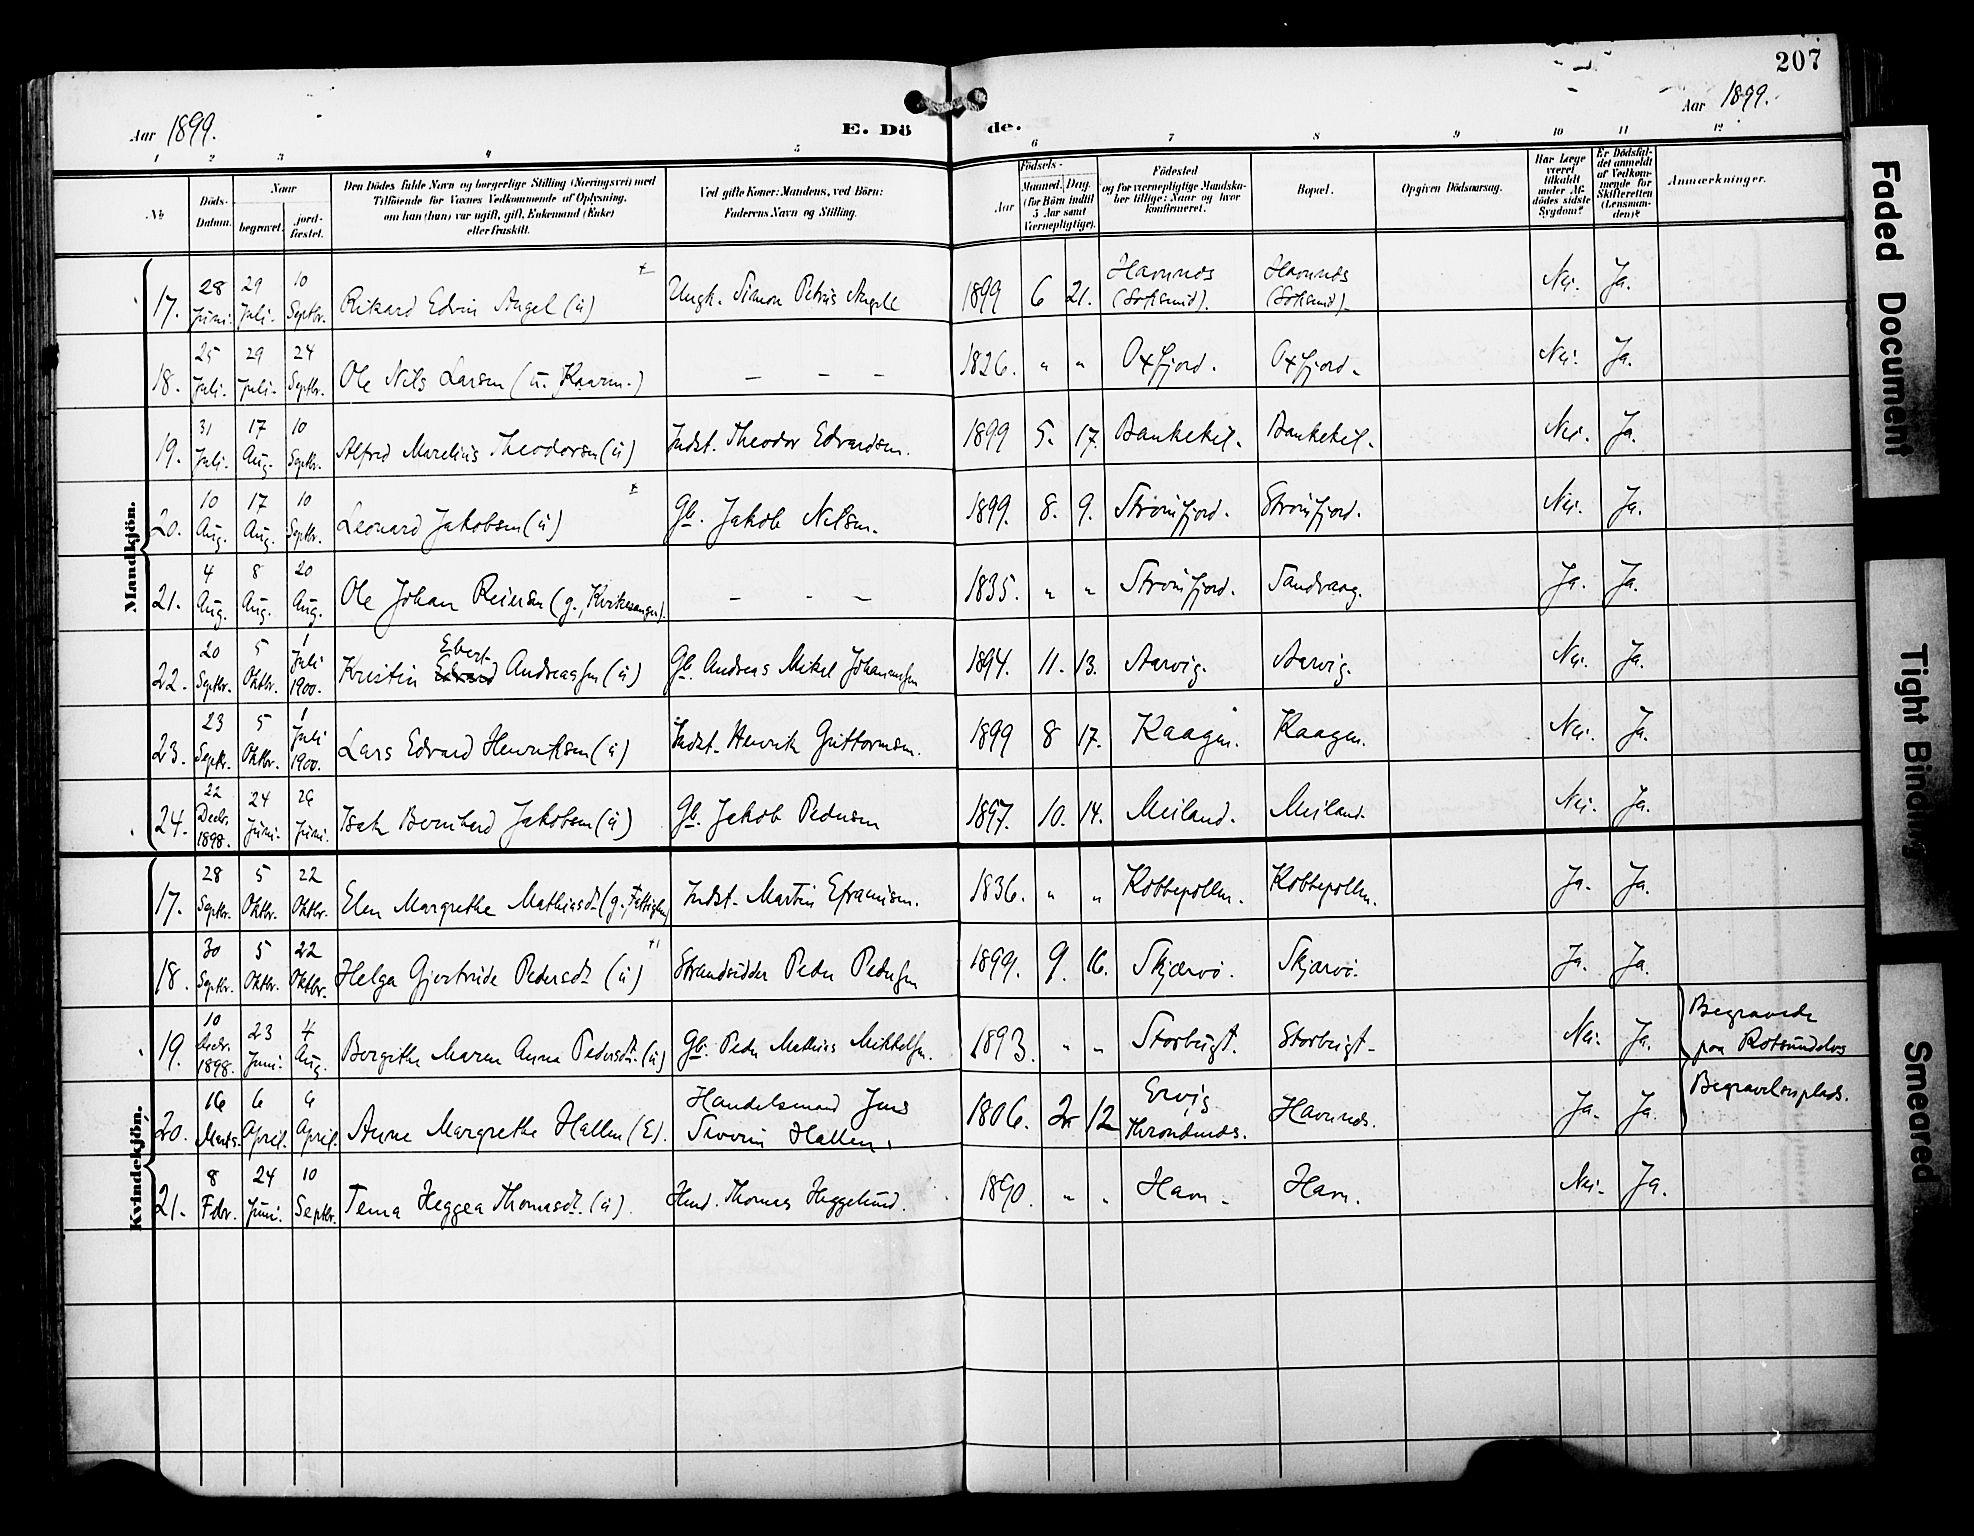 207
Aar 1899.
E. Dö
de.
Aar 1899.
1 2 3 4 5 6 7 8 9 10 11 12
No
Döds-Datum.
Naar
begravet.
jord-fæstet.
Den Dödes fulde Navn og borgerlige Stilling (Næringsvei) med
Tilföiende for Voxnes Vedkommende af Oplysning,
om han (hun) var ugift, gift, Enkemand (Enke)
eller fraskilt.
Ved gifte Koner: Mandens, ved Börn:
Faderens Navn og Stilling.
Födsels-
Aar
Maaned. Dag.
(for Börn indtil
5 Aar samt
Værnepligtige).
Födested
og for værnepligtige Mandska-
ber tillige: Naar og hvor
konfirmeret.
Bopæl.
Opgiven Dödsaarsag.
Har Læge
været
tilkaldt
under Af-
dödes sidste
Sygdom?
Er Dödsfal-
det anmeldt
af Vedkom-
mende for
Skifteretten
(Lensman-
den)?
Anmærkninger.
Mandkjön.
17. 28 Juni. 29 Juli. 10 Septbr. Rikard Edvin Angel (ü) Ungk. Simon Petrus Angell 1899 6 21. Havnnes Havnnes Nei. Ja.
18. 25 Juli. 29 Juli. 24 Septbr. Ole Nils Larsen (ü. ) — — — 1826. " " Oxfjord. Oxfjord. Nei. Ja.
19. 31 Juli. 17 Aug. 10 Septbr. Alfred Marelius Theodorsen (ü) Indst. Theodor Edvardsen. 1899 5. 17. Bankekeil. Bankekeil. Nei. Ja.
20. 10 Aug. 17 Aug. 10 Septbr. Leonard Jakobsen (ü) Gb. Jakob Nilsen. 1899. 8. 9. Strømfjord. Strømfjord. Nei. Ja.
21. 4 Aug. 8 Aug. 20 Aug. Ole Johan Reiersen (g., Kirkesanger). — - — 1835. " " Strømfjord. Sandvaag. Ja. Ja.
22. 20 Septbr. 5 Oktbr. 1 Juli 1900. Kristin Ebert Edvard Andreassen (ü) Gb. Andreas Mikal Johannessen 1894. 11. 13. Aarvig. Aarvig. Nei. Ja.
23. 23 Septbr. 5 Oktbr. 1 Juli 1900. Lars Edvard Henriksen (ü) Indst. Henrik Guttormsen. 1899 8 17. Kaagen. Kaagen. Nei. Ja.
24. 22 Decbr. 1898. 24 Juni. 26 Juni. Isak Bernhard Jakobsen (ü) Gb. Jakob Pedersen 1897. 10. 14. Meiland. Meiland. Nei. Ja.
Kvindekjön.
17. 28 Septbr. 5 Oktbr. 22 Oktbr. Elen Margrethe Mathiasdt (g., Fattiglem) Indst. Martin Efraimsen. 1836. " " Kobbepollen. Kobbepollen. Ja. Ja.
18. 30 Septbr. 5 Oktbr. 22 Oktbr. Helga Gjertrude Pedersdt (ü) Strandsidder Peder Pedersen 1899. 9. 16. Skjærvö. Skjærvö. Ja. Ja.
19. 10 Decbr. 1898. 23 Juni. 4 Aug. Borgithe Maren Anna Pedersdt. (ü) Gb. Peder Mathias Mikkelsen. 1893. " " Storbugt. Storbugt. Nei. Ja. Begravede
paa Rotsundelvs
20. 16 Marts. 6 April. 6 April. Anne Margrethe Hallen (E). Handelsmand Jens
Severin Hallen. 1806. 2. 12 Ervig
Throndenes. Havnnes. Ja. Ja. Begravelsesplads.
21. 8 Febr. 24 Juni. 10 Septbr. Tema Heggea Thomasdt. (ü). Hmd. Thomas Heggelund. 1890. " " Havn. Havn. Nei. Ja.
Faded Document
Tight Binding
Smeared